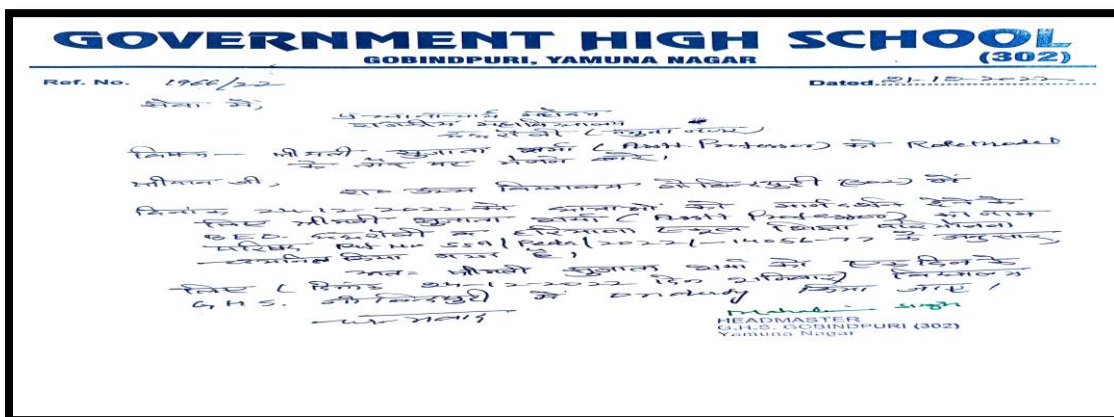 GOVERNMENT HIGH SCHOOL
GOBINDPURI, YAMUNA NAGAR (302)
Ref. No. 1966/22 Dated 21-12-2022
सेवा में,
महोदय
राजकीय महाविद्यालय
(यमुना नगर)
विषय - श्रीमती सुजाता शर्मा (Asstt. Professor) को Role Model
के तौर पर भेजने बारे,
श्रीमान जी,
विद्यालय गोबिन्दपुरी (302) में
दिनांक 24-12-2022 को छात्राओं को मार्गदर्शन देने के
लिए श्रीमती सुजाता शर्मा (Asstt Professor) का नाम
हरियाणा स्कूल शिक्षा परियोजना
के अनुसार
किया गया है।
अतः श्रीमती सुजाता शर्मा को एक दिन के
लिए (दिनांक 24-12-2022 दिन शनिवार) विद्यालय
G.H.S. गोबिन्दपुरी में onduty किया जाए।
धन्यवाद
HEADMASTER
G.H.S. GOBINDPURI (302)
Yamuna Nagar